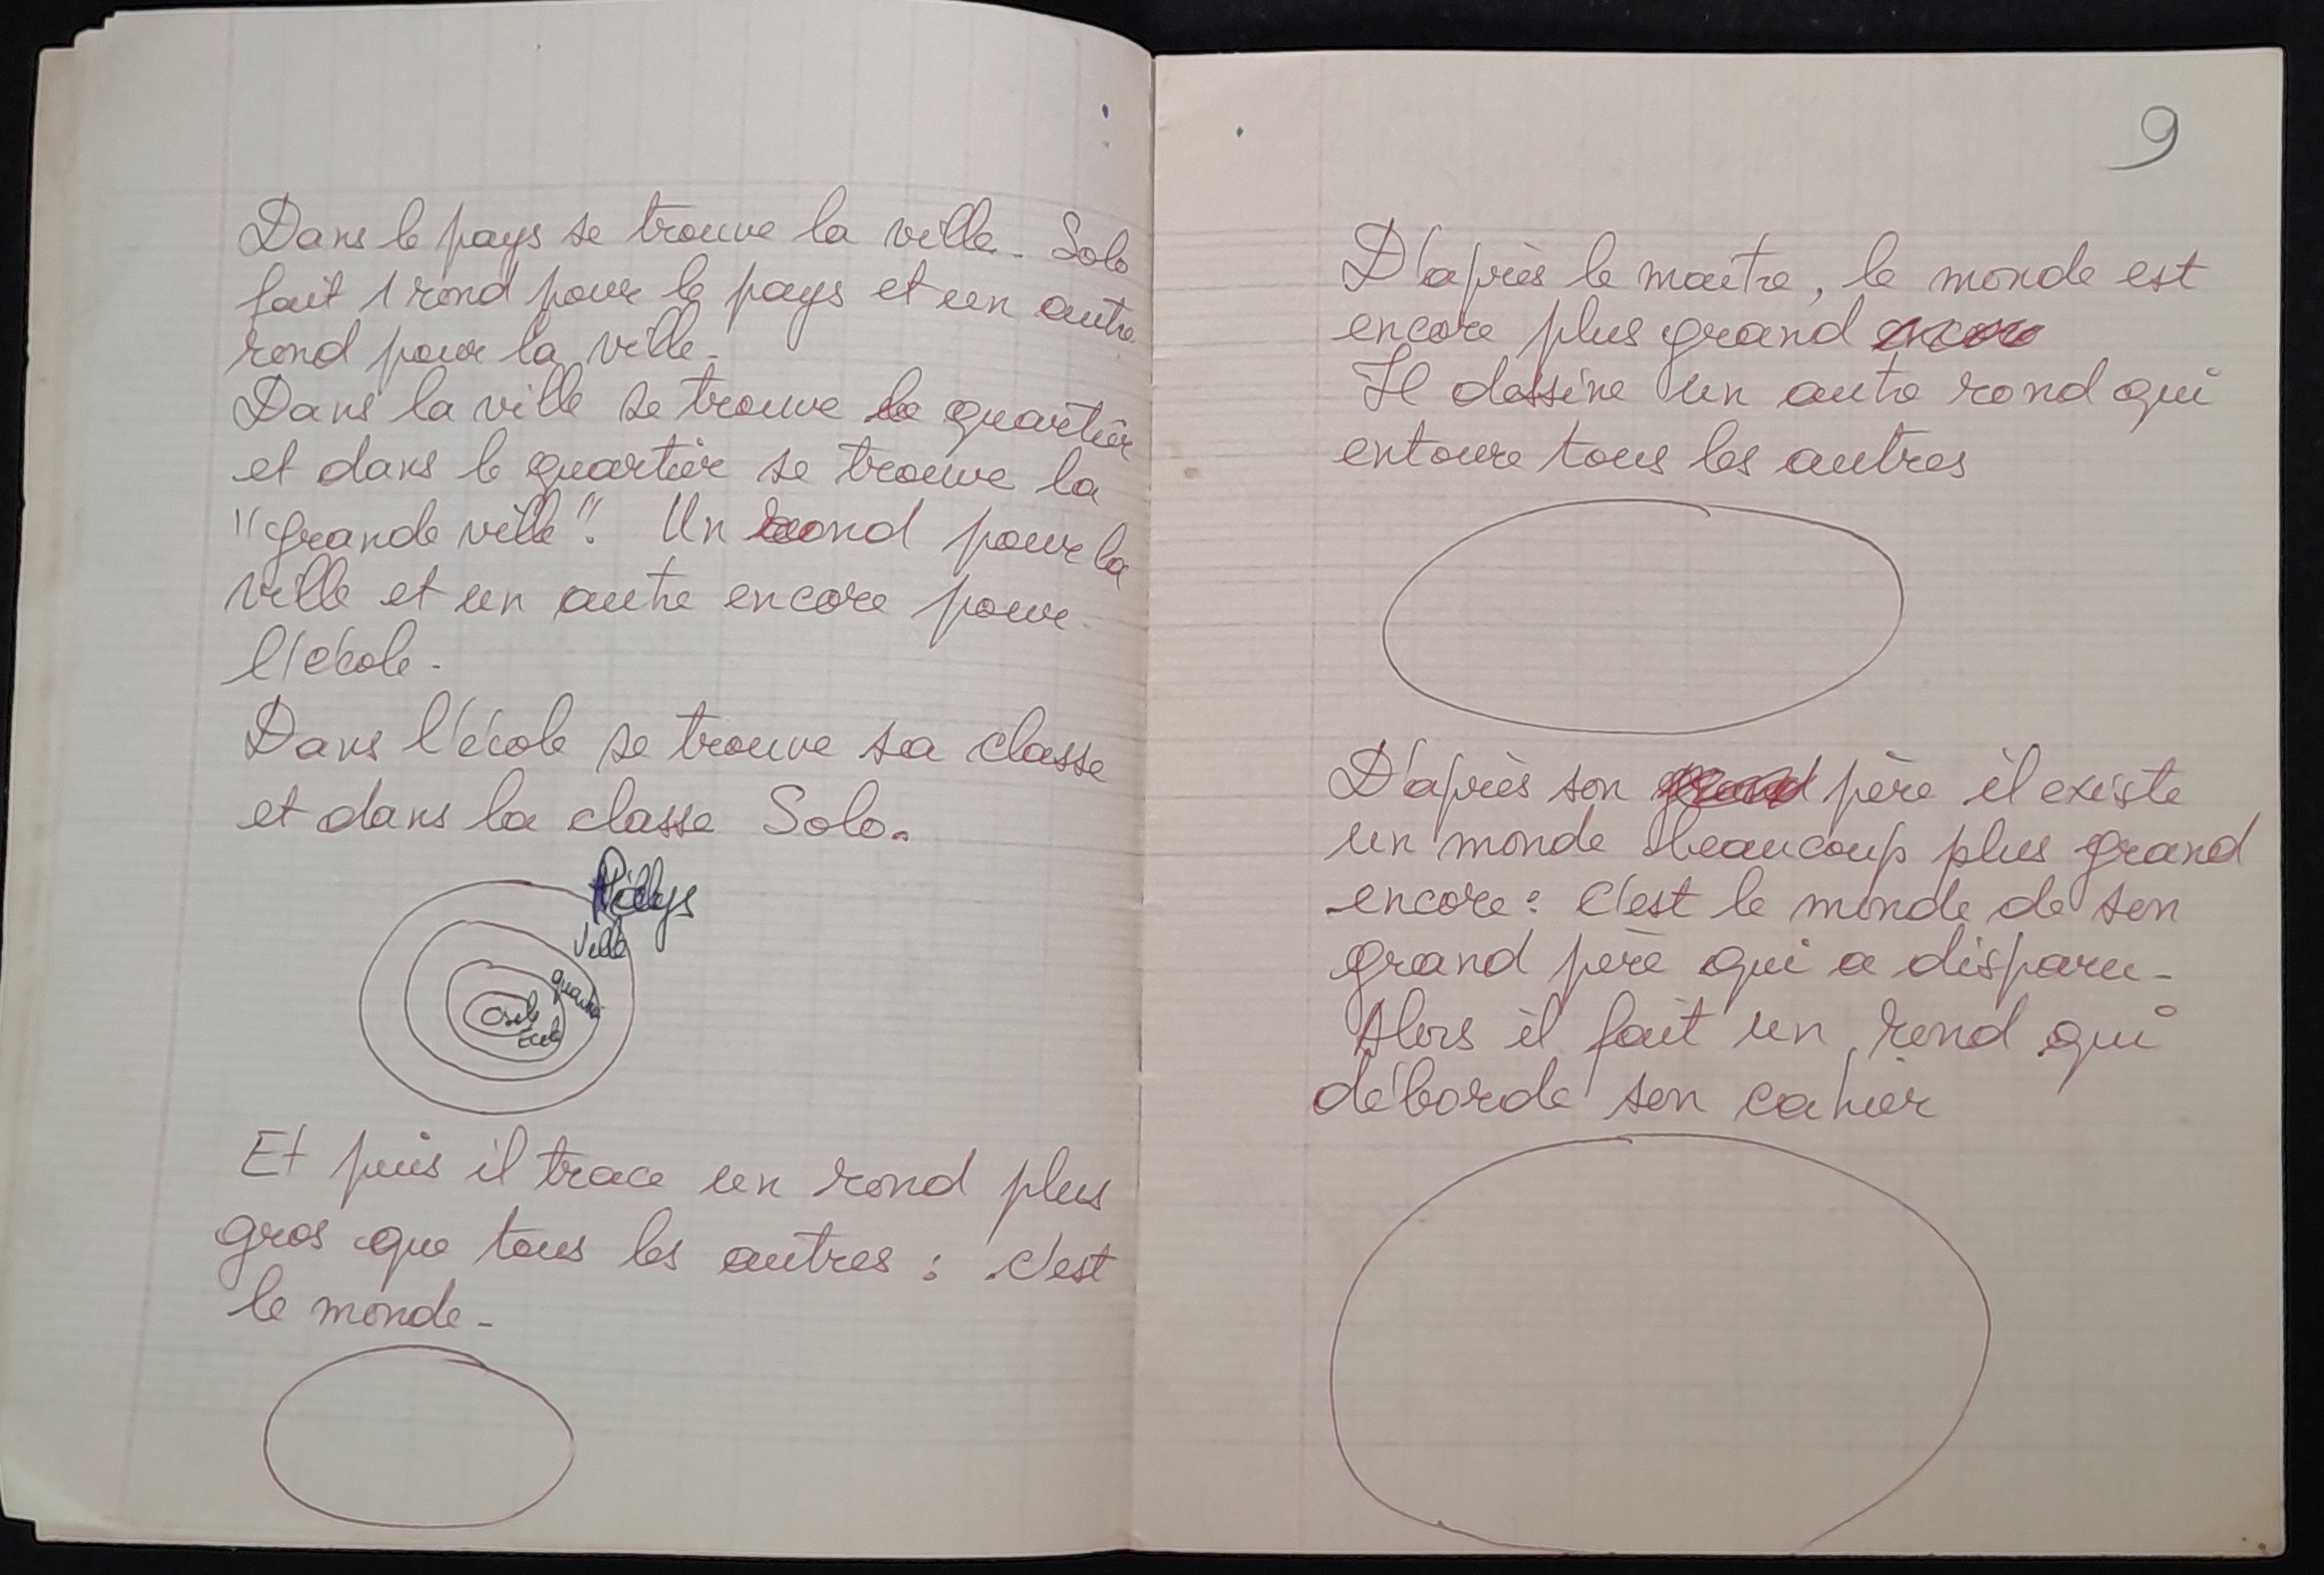 Dans le pays se trouve la ville. Solo
fait 1 rond pour le pays et un autre
rond pour la ville.
Dans la ville se trouve le quartier
et dans le quartier se trouve la
"grande ville". Un rond pour la
ville et un autre encore pour
l'école.
Dans l'école se trouve sa classe
et dans la classe Solo.
Pays
Ville
quartier
École
Et puis il trace un rond plus
gros que tous les autres : c'est
le monde.
9
D'après le maitre, le monde est
encore plus grand encore
Il dessine un autre rond qui
entoure tous les autres
D'après son grand père il existe
un monde beaucoup plus grand
encore : c'est le monde de son
grand père qui a disparu.
Alors il fait un rond qui
déborde son cahier